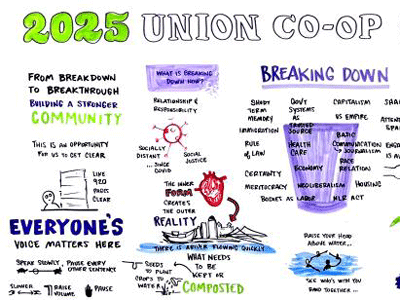 2025 UNION CO-OP
FROM BREAKDOWN
TO BREAKTHROUGH
BUILDING A STRONGER
COMMUNITY
THIS IS AN OPPORTUNITY
FOR US TO GET CLEAR
EVERYONE'S
VOICE MATTERS HERE
SPEAK SLOWLY, PAUSE EVERY
OTHER SENTENCE
SLOWER
RAISE
VOLUME
PAUSE
WHAT IS BREAKING
DOWN NOW?
RELATIONSHIP &
RESPONSIBILITY
SOCIALLY
DISTANT
... SINCE
COVID
SOCIAL
JUSTICE
THE INNER
FORM
CREATES
THE OUTER
REALITY
THERE IS A RIVER FLOWING QUICKLY
SEEDS
TO PLANT
WATER
WHAT NEEDS
TO BE
KEPT OR
COMPOSTED
BREAKING DOWN
SHORT
TERM
MEMORY
IMMIGRATION
RULE
OF LAW
CERTAINTY
MERITOCRACY
BODIES AS LABOR
GOV'T
SYSTEMS
AS
TRUSTED
SOURCE
HEALTH
CARE
ECONOMY
NEOLIBERALISM
NLR ACT
CAPITALISM
US EMPIRE
BASIC
COMMUNICATION
JOURNALISM
RACE
RELATION
HOUSING
RAISE YOUR HEAD
ABOVE WATER...
SEE WHO'S WITH YOU
AND
TOGETHER...